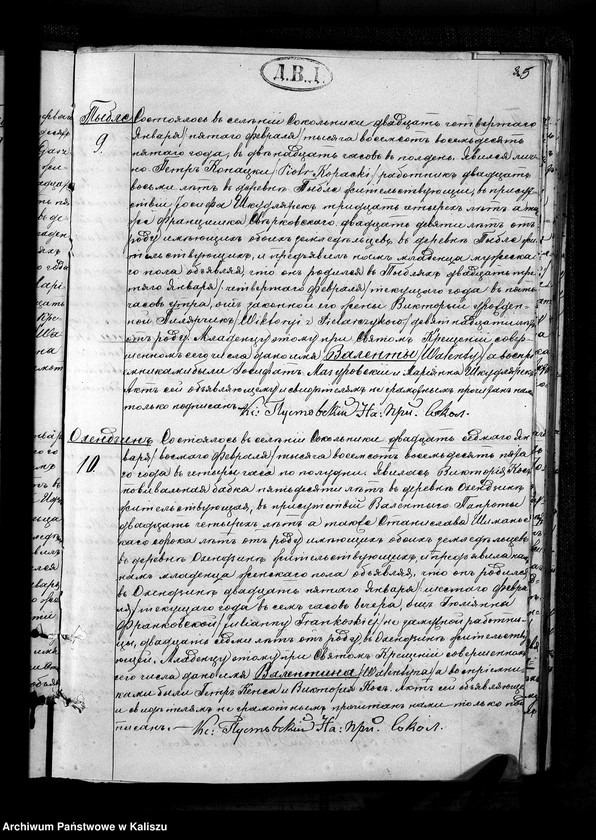 Д.В.I.
85
Тыбле
9.
Состоялось въ селеніи Сокольники двадцать четвертаго
Января/пятаго Февраля/тысяча восемсотъ восемьдесятъ
пятаго года, въ двѣнадцать часовъ въ полдень. Явился лич-
но Петръ Копацки/Piotr Kopacki/работникъ двадцать
восемь лѣтъ въ деревнѣ Тыбле жительствующій, въ присут-
ствіи Іосифа Шкудлярекъ тридцать четырехъ лѣтъ а так-
же Францишка двадцать девяти лѣтъ отъ
роду имѣющихъ обоихъ земледѣльцевъ, въ деревнѣ Тыбле жи-
тельствующихъ, и предъявилъ намъ младенца мужеска-
го пола объявляя, что онъ родился въ Тыбляхъ двадцать тре-
тяго Января/четвертаго Февраля/текущаго года въ пять
часовъ утра, отъ законной его жены Викторыи урожден-
ной Пилярчикъ/Wiktoryi z Pielarczyków/девятнадцати лѣтъ
отъ роду. Младенцу этому при Святомъ Крещеніи совер-
шенномъ сего числа дано имя Валенты/Walenty/а воспр-
емниками были Мазуровскій и Маріянна Шкудлярекъ.
Актъ сей объявляющему и свидѣтелямъ неграмотнымъ прочитанъ нам
только подписанъ Кс: Пустовскій На: Прих: Сокол.
Олендринъ
10.
Состоялось въ селеніи Сокольники двадцать седмаго Ян-
варя/восмаго Февраля/тысяча восемсотъ восемьдесятъ пята-
го года въ четыре часа по полудни. Явилась Викторія Косъ
повивальная бабка пятьдесяти лѣтъ въ деревнѣ Олендринъ
жительствующая, въ присутствіи Валентого Папроты
двадцать четырехъ лѣтъ а также Станислава Шиманс-
каго сорока лѣтъ отъ роду имѣющихъ обоихъ земледѣльцевъ
въ деревнѣ Олендринъ жительствующихъ, и предъявила
намъ младенца женскаго пола объявляя, что онъ родился
въ Олендринѣ двадцать пятаго Января/шестаго Февра-
ля/текущаго года въ семъ часовъ вечера, отъ Юліянна
Франковской/Julianny Frankoskiej/не замужной работни-
цы, двадцать седми лѣтъ отъ роду въ Олендринѣ жительств-
ующей. Младенцу этому при Святомъ Крещеніи совершенномъ
сего числа дано имя Валентина/Walentyna/а воспріемни-
ками были Петръ Кенсы и Викторія Косъ. Актъ сей объявляющей
и свидѣтелямъ неграмотнымъ прочитанъ нами только под-
писанъ. — Кс: Пустовскій На: Прих: Сокол.
Archiwum Państwowe w Kaliszu